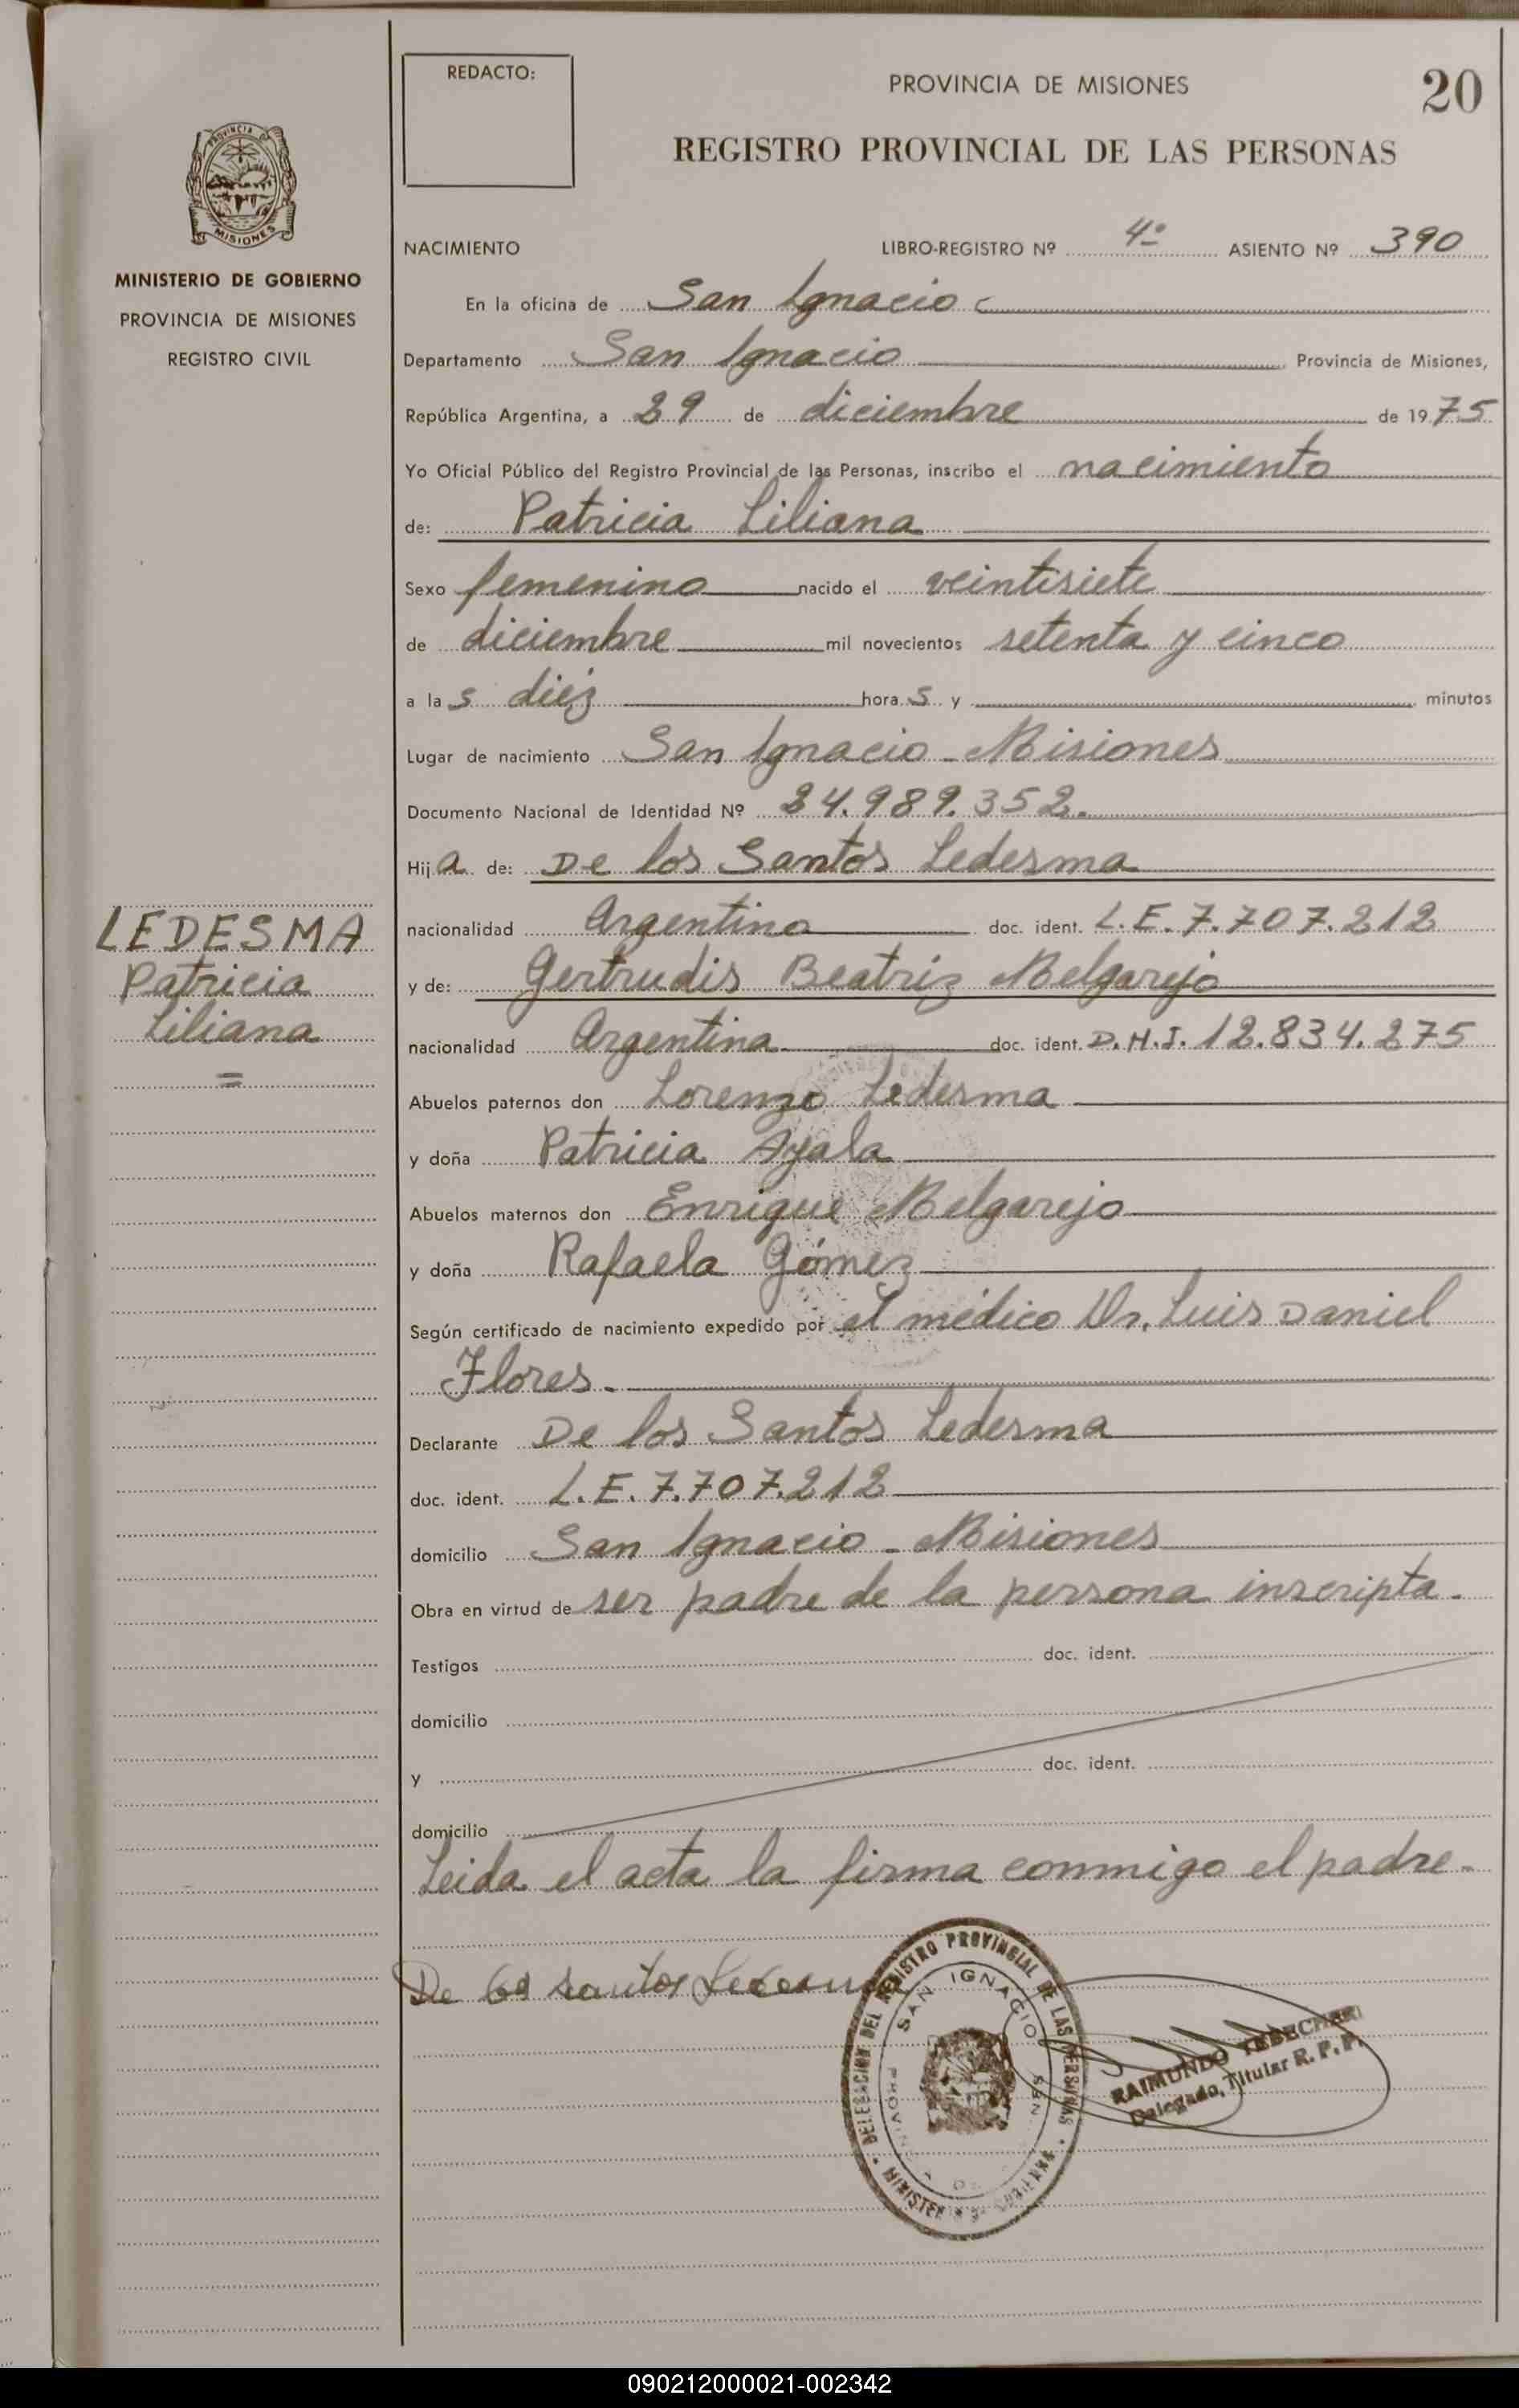 REDACTO:
PROVINCIA DE MISIONES
20
REGISTRO PROVINCIAL DE LAS PERSONAS
PROVINCIA DE
MISIONES
MINISTERIO DE GOBIERNO
PROVINCIA DE MISIONES
REGISTRO CIVIL
NACIMIENTO LIBRO-REGISTRO Nº 4º ASIENTO Nº 390
En la oficina de San Ignacio
Departamento San Ignacio Provincia de Misiones,
República Argentina, a 29 de diciembre de 1975
Yo Oficial Público del Registro Provincial de las Personas, inscribo el nacimiento
de: Patricia Liliana
Sexo femenino nacido el veintisiete
de diciembre mil novecientos setenta y cinco
a las diez horas y minutos
Lugar de nacimiento San Ignacio - Misiones
Documento Nacional de Identidad Nº 24.989.352.
Hija de: De los Santos Ledesma
nacionalidad Argentino doc. ident. L.E. 7.707.212
y de: Gertrudis Beatriz Melgarejo
nacionalidad Argentina doc. ident. D.N.I. 12.834.275
Abuelos paternos don Lorenzo Ledesma
y doña Patricia Ayala
Abuelos maternos don Enrique Melgarejo
y doña Rafaela Gómez
Según certificado de nacimiento expedido por el médico Dr. Luis Daniel
Flores.
Declarante De los Santos Ledesma
doc. ident. L.E. 7.707.212
domicilio San Ignacio - Misiones
Obra en virtud de ser padre de la persona inscripta.
Testigos doc. ident.
domicilio
y doc. ident.
domicilio
Leida el acta la firma conmigo el padre.
LEDESMA
Patricia
Liliana
=
De los Santos Ledesma
DELEGACION DEL REGISTRO PROVINCIAL DE LAS PERSONAS
SAN IGNACIO
RAIMUNDO
Delegado, Titular R. P. P.
090212000021-002342